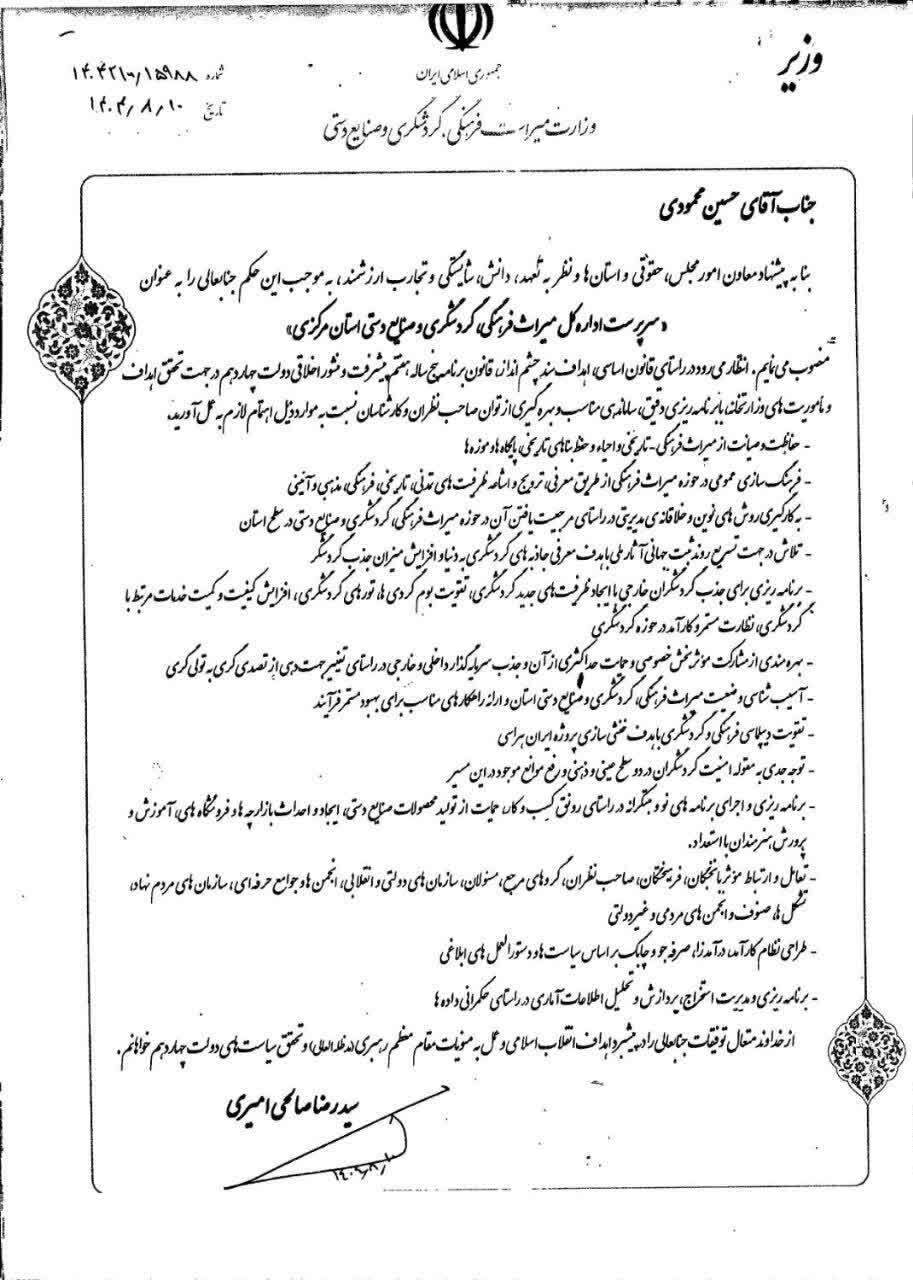 وزیر
جمهوری اسلامی ایران
وزارت میراث فرهنگی، گردشگری و صنایع دستی
شماره ۱۴۰۴۲۱۰/۱۵۹۸۸
تاریخ ۱۴۰۴/۸/۱۰
جناب آقای حسین محمودی
بنا به پیشنهاد معاون امور مجلس، حقوقی و استان ها و نظر به تعهد، دانش، شایستگی و تجارب ارزشمند، به موجب این حکم جنابعالی را به عنوان
«سرپرست اداره کل میراث فرهنگی، گردشگری و صنایع دستی استان مرکزی»
منصوب می نمایم. انتظار می رود در راستای قانون اساسی، اهداف سند چشم انداز، قانون برنامه پنج ساله هفتم پیشرفت و منشور اخلاقی دولت چهاردهم در جهت تحقق اهداف
و مأموریت های وزارتخانه، با برنامه ریزی دقیق، ساماندهی مناسب و بهره گیری از توان صاحب نظران و کارشناسان نسبت به موارد ذیل اهتمام لازم به عمل آورید.
- حفاظت و صیانت از میراث فرهنگی - تاریخی و احیاء و حفظ بناهای تاریخی، پایگاه ها و موزه ها
- فرهنگ سازی عمومی در حوزه میراث فرهنگی از طریق معرفی، ترویج و اشاعه ظرفیت های تمدنی، تاریخی، فرهنگی، مذهبی و آئینی
- به کارگیری روش های نوین و خلاقانه ی مدیریتی در راستای مرجعیت یافتن آن در حوزه میراث فرهنگی، گردشگری و صنایع دستی در سطح استان
- تلاش در جهت تسریع روند ثبت جهانی آثار ملی با هدف معرفی جاذبه های گردشگری به دنیا و افزایش میزان جذب گردشگر
- برنامه ریزی برای جذب گردشگران خارجی با ایجاد ظرفیت های جدید گردشگری، تقویت بوم گردی ها، تورهای گردشگری، افزایش کیفیت و کمیت خدمات مرتبط با
گردشگری، نظارت مستمر و کارآمد در حوزه گردشگری
- بهره مندی از مشارکت مؤثر بخش خصوصی و حمایت حداکثری از آن و جذب سرمایه گذار داخلی و خارجی در راستای تغییر جهت دهی از تصدی گری به تولی گری
- آسیب شناسی وضعیت میراث فرهنگی، گردشگری و صنایع دستی استان و ارائه راهکارهای مناسب برای بهبود مستمر فرآیند
- تقویت دیپلماسی فرهنگی و گردشگری با هدف خنثی سازی پروژه ایران هراسی
- توجه جدی به مقوله امنیت گردشگران در دو سطح عینی و ذهنی و رفع موانع موجود در این مسیر
- برنامه ریزی و اجرای برنامه های نو و مبتکرانه در راستای رونق کسب و کار، حمایت از تولید محصولات صنایع دستی، ایجاد و احداث بازارچه ها و فروشگاه های، آموزش و
پرورش هنرمندان با استعداد.
- تعامل و ارتباط مؤثر با نخبگان، فرهیختگان، صاحب نظران، گروه های مرجع، مسئولان، سازمان های دولتی و انقلابی، انجمن ها و جوامع حرفه ای، سازمان های مردم نهاد،
تشکل ها، صنوف و انجمن های مردمی و غیردولتی
- طراحی نظام کارآمد، درآمدزا، صرفه جو و چابک بر اساس سیاست ها و دستورالعمل های ابلاغی
- برنامه ریزی و مدیریت استخراج، پردازش و تحلیل اطلاعات آماری در راستای حکمرانی داده ها
از خداوند متعال توفیقات جنابعالی را در پیشبرد اهداف انقلاب اسلامی و عمل به منویات مقام معظم رهبری (مدظله العالی) و تحقق سیاست های دولت چهاردهم خواهانم.
سید رضا صالحی امیری
۱۴۰۴/۸/۱۰